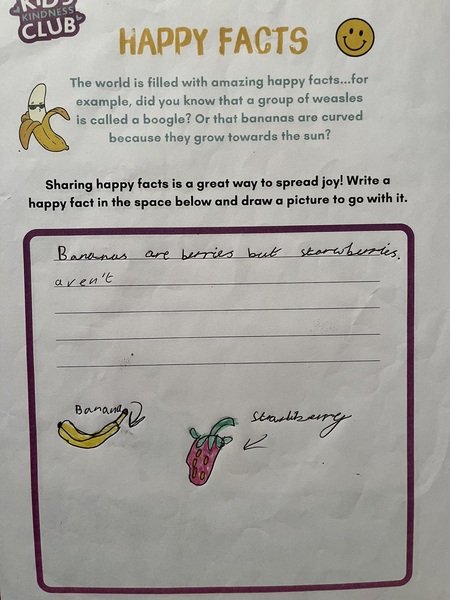 KIDS
KINDNESS
CLUB
HAPPY FACTS
The world is filled with amazing happy facts...for
example, did you know that a group of weasles
is called a boogle? Or that bananas are curved
because they grow towards the sun?
Sharing happy facts is a great way to spread joy! Write a
happy fact in the space below and draw a picture to go with it.
Bananas are berries but starwberries.
aren't
Banana
Strawberry